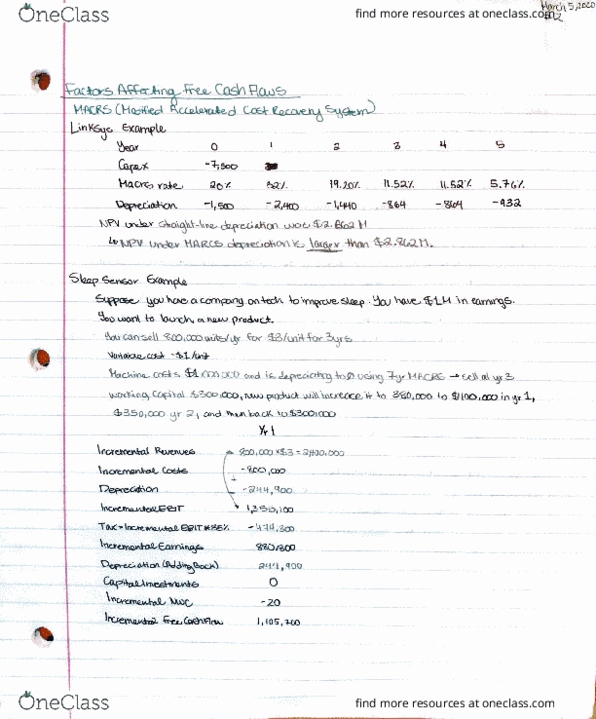 OneClass
find more resources at oneclass.com
March 5, 2020
Factors Affecting Free Cash Flows
MACRS (Modified Accelerated Cost Recovery System)
Linksys Example
Year 0 1 2 3 4 5
Capex -7,500
Macrs rate 20% 32% 19.20% 11.52% 11.52% 5.76%
Depreciation -1,500 -2,400 -1,440 -864 -864 -432
NPV under straight-line depreciation was $2.862M
↳ NPV under MARCS depreciation is larger than $2.862M.
Sleep Sensor Example
Suppose you have a company on tech to improve sleep. You have $1M in earnings.
You want to launch a new product.
You can sell 800,000 units/yr for $3/unit for 3yrs
Variable cost -$1/unit
Machine costs $1,000,000 and is depreciating to 0 using 7yr MACRS → sell at yr 3
Working Capital $300,000, new product will increase it to 380,000 to $400,000 in yr 1,
$350,000 yr 2, and then back to $300,000
Yr 1
Incremental Revenues 800,000 x $3 = 2,400,000
Incremental Costs -800,000
Depreciation -244,900
Incremental EBIT 1,355,100
Tax = Incremental EBIT * 35% -474,300
Incremental Earnings 880,800
Depreciation (Adding Back) 244,900
Capital Investments 0
Incremental NWC -20
Incremental Free Cash Flow 1,105,700
OneClass
find more resources at oneclass.com